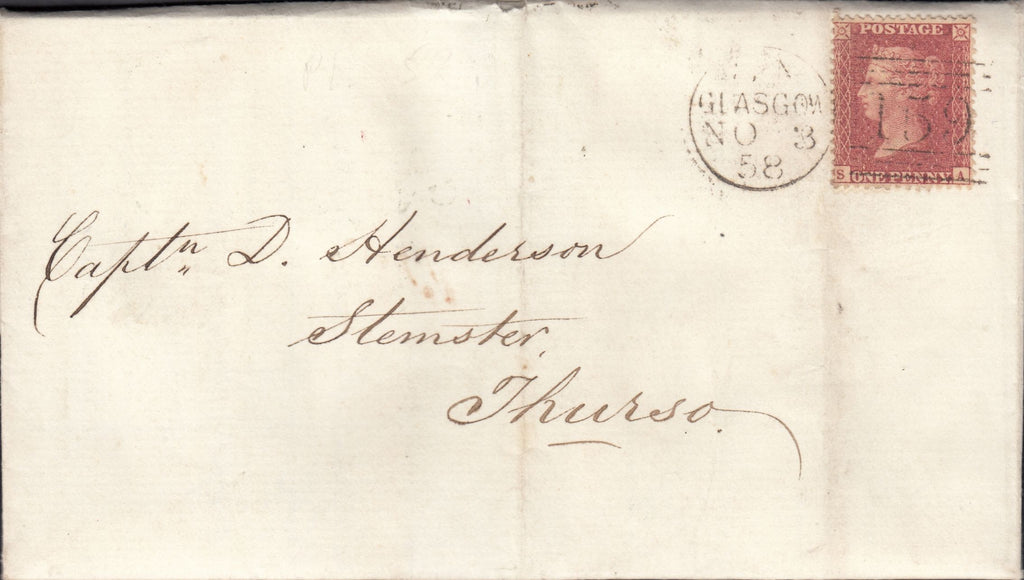 POSTAGE
GLASGOW
NO 3
58
159
S ONE PENNY A
Captn D. Henderson
Stemster,
Thurso.